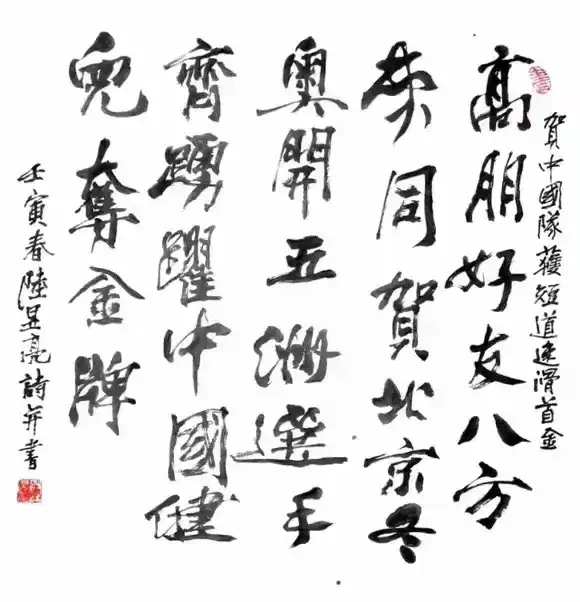 賀中國隊獲短道速滑首金
高朋好友八方
來同賀北京冬
奧開五洲選手
齊踴躍中國健
兒奪金牌
壬寅春陸昱亮詩并書